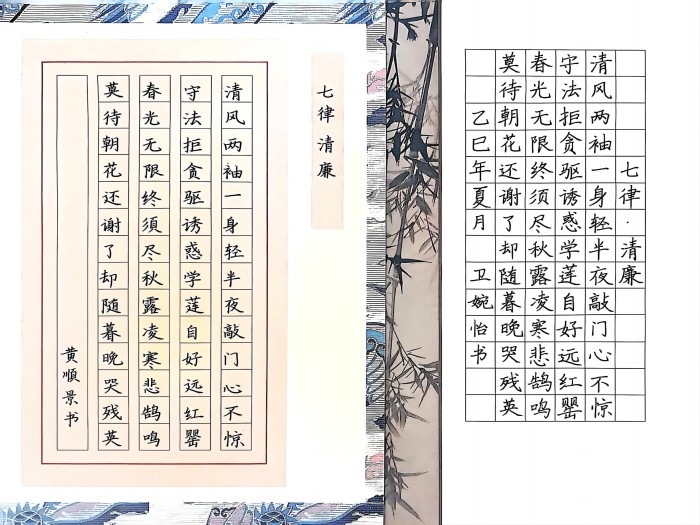 七律 清廉
清风两袖一身轻半夜敲门心不惊
守法拒贪驱诱惑学莲自好远红罂
春光无限终须尽秋露凌寒悲鹄鸣
莫待朝花还谢了却随暮晚哭残英
黄順景书
七律·清廉
清风两袖一身轻半夜敲门心不惊
守法拒贪驱诱惑学莲自好远红罂
春光无限终须尽秋露凌寒悲鹄鸣
莫待朝花还谢了却随暮晚哭残英
乙巳年夏月 卫婉怡书